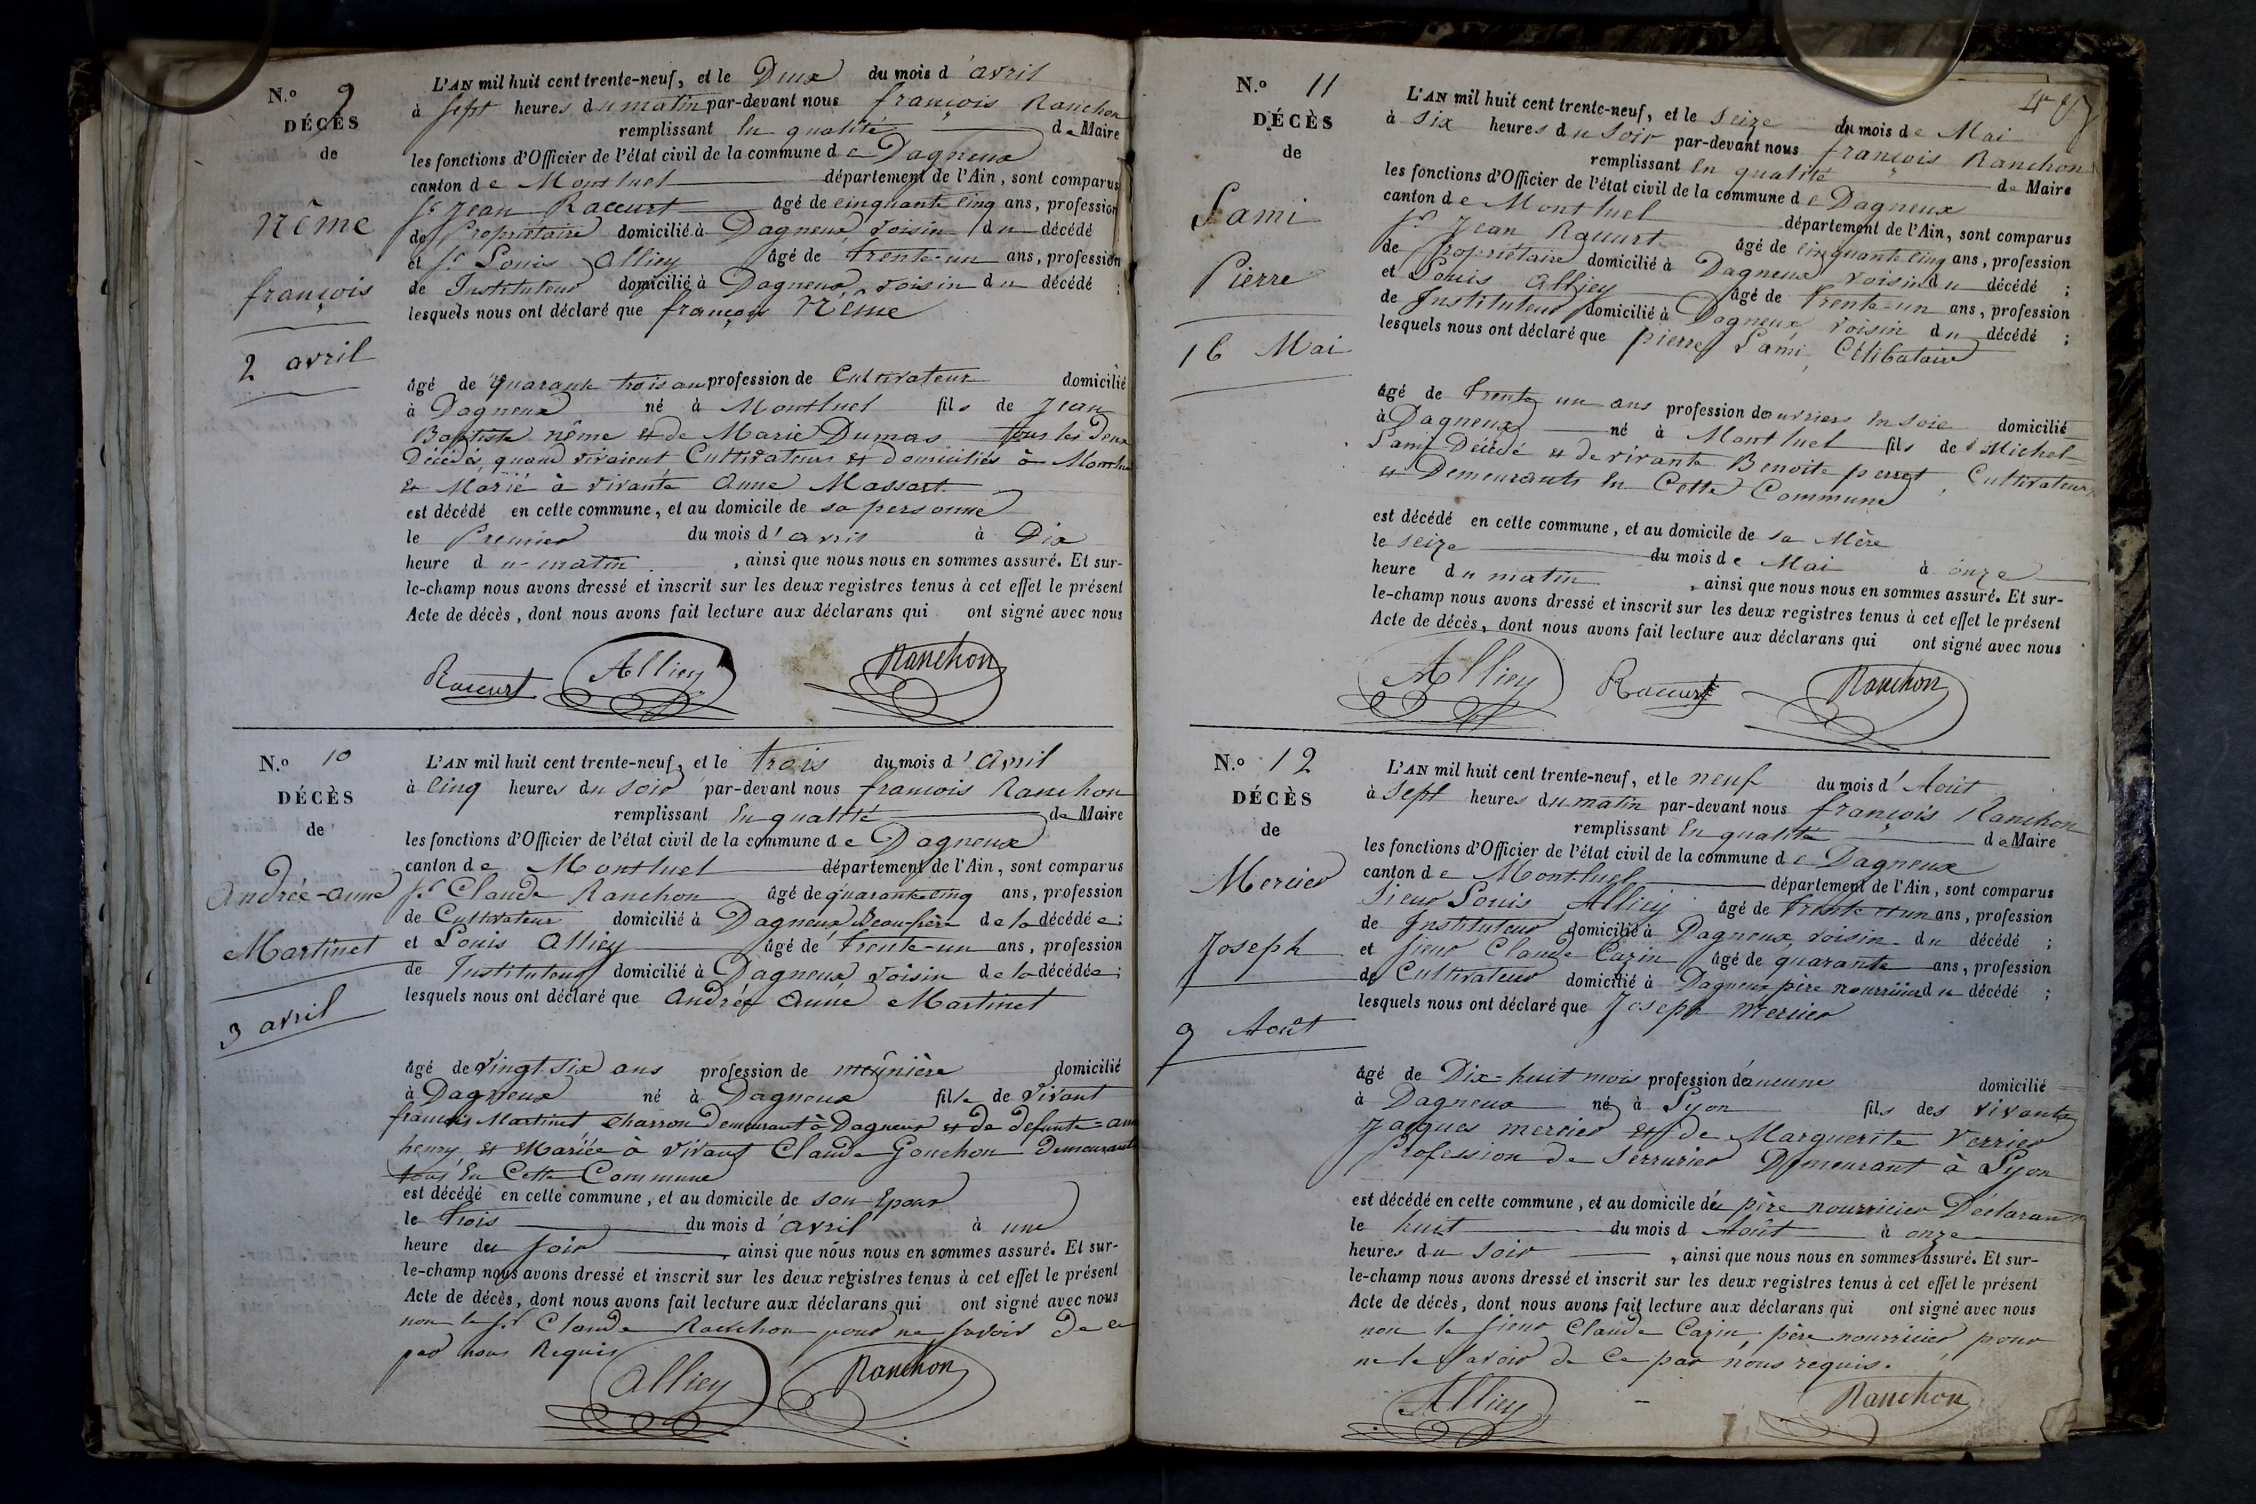 N.º 9
DÉCÈS
de
nême
françois
2 avril
L'AN mil huit cent trente-neuf, et le Deux du mois d'avril
à sept heures du matin par-devant nous françois Ranchon
remplissant En qualité de Maire
les fonctions d'Officier de l'état civil de la commune de Dagneux
canton de Montluel département de l'Ain, sont comparus
Sr Jean Raccurt âgé de cinquante cinq ans, profession
de Propriétaire domicilié à Dagneux, voisin du décédé
et Sr Louis Alliey âgé de trente-un ans, profession
de Instituteur domicilié à Dagneux, voisin du décédé ;
lesquels nous ont déclaré que françois Nême
âgé de quarante trois ans profession de Cultivateur domicilié
à Dagneux né à Montluel fils de Jean
Baptiste nême et de Marie Dumas tous les Deux
Décédés, quand vivaient Cultivateurs et domiciliés à Montluel
et Marié à vivante Anne Massart
est décédé en cette commune, et au domicile de sa personne
le Premier du mois d'avril à Dix
heure du matin, ainsi que nous nous en sommes assuré. Et sur-
le-champ nous avons dressé et inscrit sur les deux registres tenus à cet effet le présent
Acte de décès, dont nous avons fait lecture aux déclarans qui ont signé avec nous
Raccurt Alliey Ranchon
N.º 10
DÉCÈS
de
Andrée-anne
Martinet
3 avril
L'AN mil huit cent trente-neuf, et le trois du mois d'Avril
à cinq heures du soir par-devant nous françois Ranchon
remplissant En qualité de Maire
les fonctions d'Officier de l'état civil de la commune de Dagneux
canton de Montluel département de l'Ain, sont comparus
Sr Claude Ranchon âgé de quarante cinq ans, profession
de Cultivateur domicilié à Dagneux, Beau-frère de la décédée ;
et Louis Alliey âgé de trente-un ans, profession
de Instituteur domicilié à Dagneux, voisin de la décédée ;
lesquels nous ont déclaré que Andrée Anne Martinet
âgé de vingt six ans profession de meûnière domicilié
à Dagneux né à Dagneux fille de vivant
françois Martinet charron demeurant à Dagneux et de defunte anne
henry, et Mariée à vivant Claude Gonchon Demeurants
tous En Cette Commune
est décédé en cette commune, et au domicile de son Epoux
le trois du mois d'avril à une
heure du soir, ainsi que nous nous en sommes assuré. Et sur-
le-champ nous avons dressé et inscrit sur les deux registres tenus à cet effet le présent
Acte de décès, dont nous avons fait lecture aux déclarans qui ont signé avec nous
non le Sr Claude Ranchon pour ne savoir de ce
par nous Requis
Alliey Ranchon
N.º 11
DÉCÈS
de
Lami
Pierre
16 Mai
L'AN mil huit cent trente-neuf, et le seize du mois de Mai
à six heures du soir par-devant nous françois Ranchon
remplissant En qualité de Maire
les fonctions d'Officier de l'état civil de la commune de Dagneux
canton de Montluel département de l'Ain, sont comparus
Sr Jean Raccurt âgé de cinquante cinq ans, profession
de Propriétaire domicilié à Dagneux voisin du décédé ;
et Louis Alliey âgé de trente-un ans, profession
de Instituteur domicilié à Dagneux, voisin du décédé ;
lesquels nous ont déclaré que pierre Lami, Célibataire
âgé de trente un ans profession de ouvriers en soie domicilié
à Dagneux né à Montluel fils de Michel
Lami Décédé et de vivante Benoite perret, Cultivateurs
et Demeurants En Cette Commune
est décédé en cette commune, et au domicile de sa Mère
le seize du mois de Mai à onze
heure du matin, ainsi que nous nous en sommes assuré. Et sur-
le-champ nous avons dressé et inscrit sur les deux registres tenus à cet effet le présent
Acte de décès, dont nous avons fait lecture aux déclarans qui ont signé avec nous
Alliey Raccurt Ranchon
N.º 12
DÉCÈS
de
Mercier
Joseph
9 Août
L'AN mil huit cent trente-neuf, et le neuf du mois d'Août
à sept heures du matin par-devant nous françois Ranchon
remplissant En qualité de Maire
les fonctions d'Officier de l'état civil de la commune de Dagneux
canton de Montluel département de l'Ain, sont comparus
Sieur Louis Alliey âgé de trente et un ans, profession
de Instituteur domicilié à Dagneux, voisin du décédé ;
et sieur Claude Cazin âgé de quarante ans, profession
de Cultivateur domicilié à Dagneux père nourricier du décédé ;
lesquels nous ont déclaré que Joseph mercier
âgé de Dix-huit mois profession d'aucune domicilié
à Dagneux né à Lyon fils des vivants
Jacques mercier et de Marguerite Verrier
Profession de Serrurier Demeurant à Lyon
est décédé en cette commune, et au domicile du père nourricier Déclarant
le huit du mois d Août à onze
heures du soir, ainsi que nous nous en sommes assuré. Et sur-
le-champ nous avons dressé et inscrit sur les deux registres tenus à cet effet le présent
Acte de décès, dont nous avons fait lecture aux déclarans qui ont signé avec nous
non le sieur Claude Cazin père nourricier, pour
ne le savoir de ce par nous requis.
Alliey Ranchon